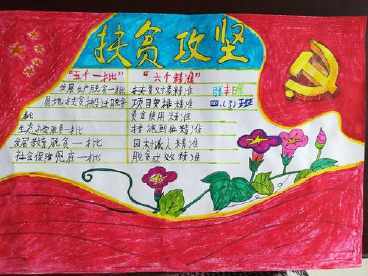 扶贫攻坚
"五个一批"
发展生产脱贫一批
易地扶贫搬迁脱贫一批
生态补偿脱贫一批
发展教育脱贫一批
社会保障兜底一批
"六个精准"
扶贫对象精准
项目安排精准
资金使用精准
措施到户精准
因村派人精准
脱贫成效精准